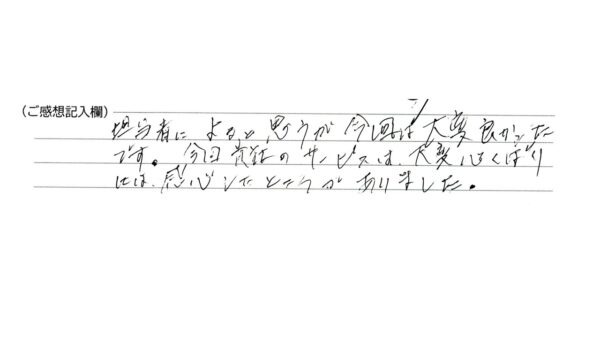 (ご感想記入欄)
担当者によると思うが今回は大変良かった
です。今回貴社のサービスは、大変心くばり
には、感心したところがありました。